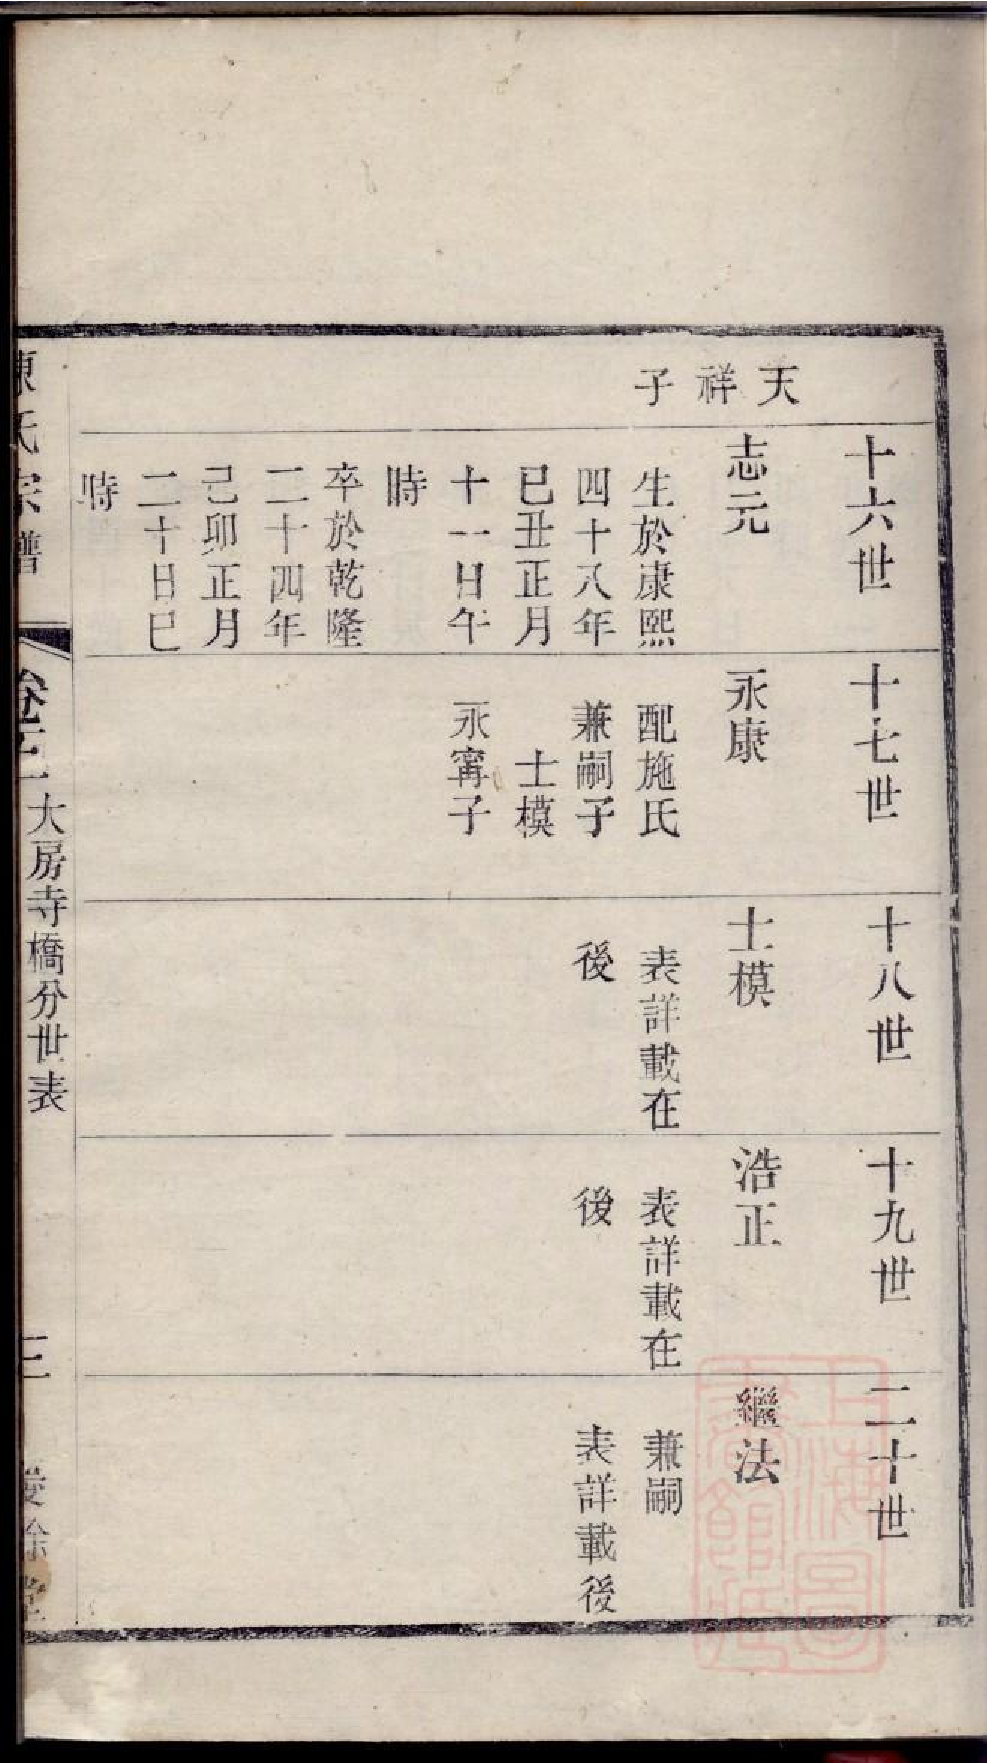 天祥子
十六世
志元
生於康熙
四十八年
已丑正月
十一日午
時
卒於乾隆
二十四年
己卯正月
二十日巳
時
十七世
永康
配施氏
兼嗣子
士模
永甯子
十八世
士模
表詳載在
後
十九世
浩正
表詳載在
後
二十世
繼法
兼嗣
表詳載後
陳氏宗譜
卷二
大房寺橋分世表
三
上海圖
書館藏